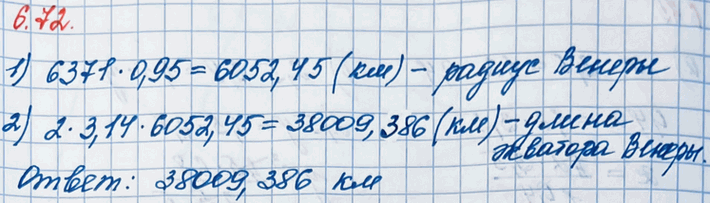 6.72.
1) 6371 · 0,95 = 6052,45 (км) – радиус Венеры
2) 2 · 3,14 · 6052,45 = 38009,386 (км) – длина
экватора Венеры.
Ответ: 38009,386 км